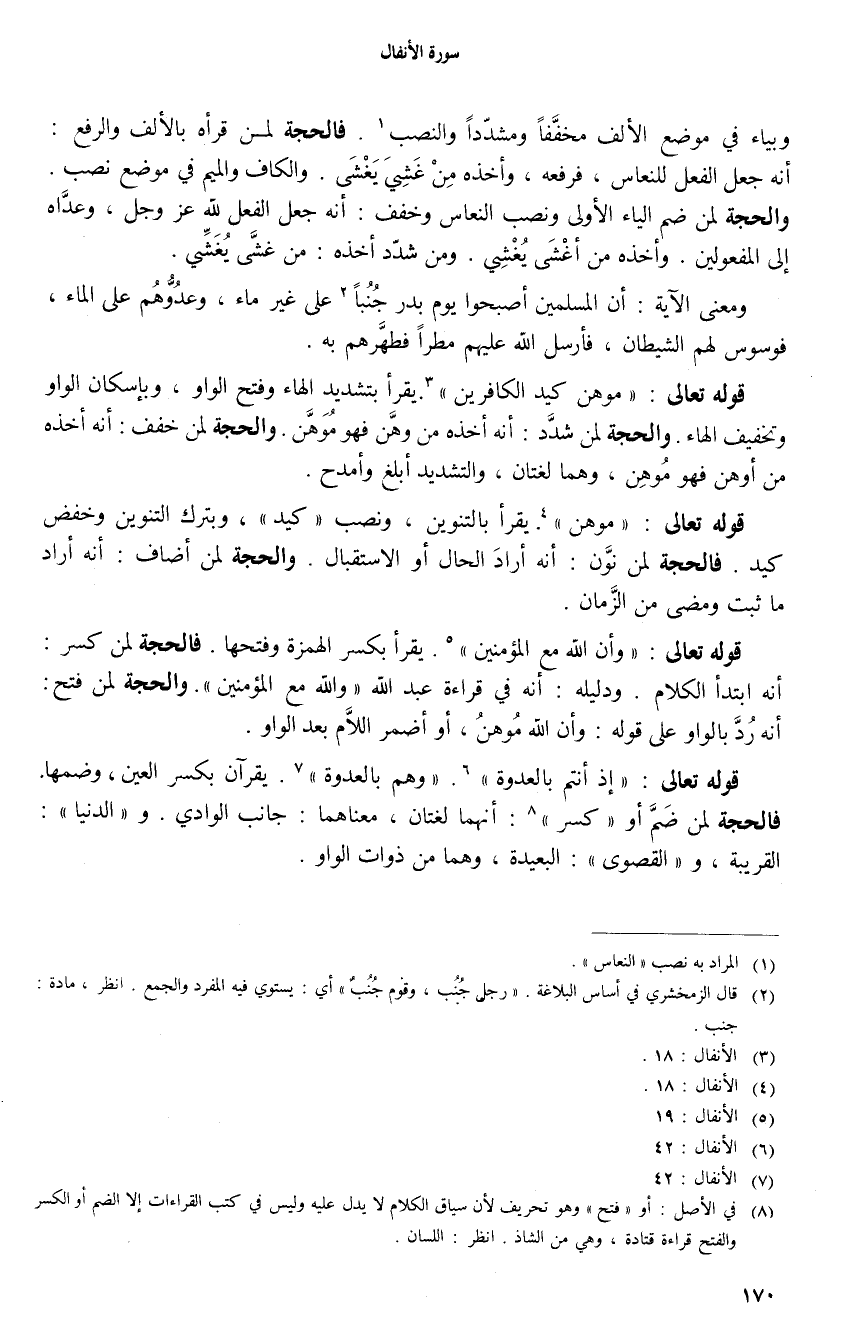 سورة الأنفال
وبياء في موضع الألف مخفَّفاً ومشدّداً والنصب١ . فالحجة لمن قرأه بالألف والرفع :
أنه جعل الفعل للنعاس ، فرفعه ، وأخذه مِنْ غَشِيَ يَغْشَى . والكاف والميم في موضع نصب .
والحجة لمن ضم الياء الأولى ونصب النعاس وخفف : أنه جعل الفعل لله عز وجل ، وعدَّاه
إلى المفعولين . وأخذه من أغْشَى يُغْشِي . ومن شدّد أخذه : من غشَّى يُغَشِّي .
ومعنى الآية : أن المسلمين أصبحوا يوم بدر جُنُباً٢ على غير ماء ، وعدُوُّهُم على الماء ،
فوسوس لهم الشيطان ، فأرسل الله عليهم مطراً فطهَّرهم به .
قوله تعالى : « موهن كيد الكافرين »٣. يقرأ بتشديد الهاء وفتح الواو ، وبإسكان الواو
وتخفيف الهاء . والحجة لمن شدَّد : أنه أخذه من وهَّن فهو مُوَهَّن . والحجة لمن خفف : أنه أخذه
من أوهن فهو مُوهِن ، وهما لغتان ، والتشديد أبلغ وأمدح .
قوله تعالى : « موهن »٤. يقرأ بالتنوين ، ونصب « كيد » ، وبترك التنوين وخفض
كيد . فالحجة لمن نوَّن : أنه أرادَ الحال أو الاستقبال . والحجة لمن أضاف : أنه أراد
ما ثبت ومضى من الزَّمان .
قوله تعالى : « وأن الله مع المؤمنين »٥ . يقرأ بكسر الهمزة وفتحها . فالحجة لمن كسر :
أنه ابتدأ الكلام . ودليله : أنه في قراءة عبد الله « والله مع المؤمنين ». والحجة لمن فتح :
أنه رُدَّ بالواو على قوله : وأن الله مُوهنُ ، أو أضمر اللاَّم بعد الواو .
قوله تعالى : « إذ أنتم بالعدوة »٦ . « وهم بالعدوة »٧ . يقرآن بكسر العين ، وضمها.
فالحجة لمن ضَمَّ أو « كسر »٨ : أنهما لغتان ، معناهما : جانب الوادي . و « الدنيا » :
القريبة ، و « القصوى » : البعيدة ، وهما من ذوات الواو .
(١) المراد به نصب « النعاس » .
(٢) قال الزمخشري في أساس البلاغة . « رجل جُنُب ، وقوم جُنُبٌ » أي : يستوي فيه المفرد والجمع . انظر ، مادة :
جنب .
(٣) الأنفال : ١٨ .
(٤) الأنفال : ١٨ .
(٥) الأنفال : ١٩
(٦) الأنفال : ٤٢
(٧) الأنفال : ٤٢
(٨) في الأصل : أو « فتح » وهو تحريف لأن سياق الكلام لا يدل عليه وليس في كتب القراءات إلا الضم أو الكسر
والفتح قراءة قتادة ، وهي من الشاذ . انظر : اللسان .
١٧٠